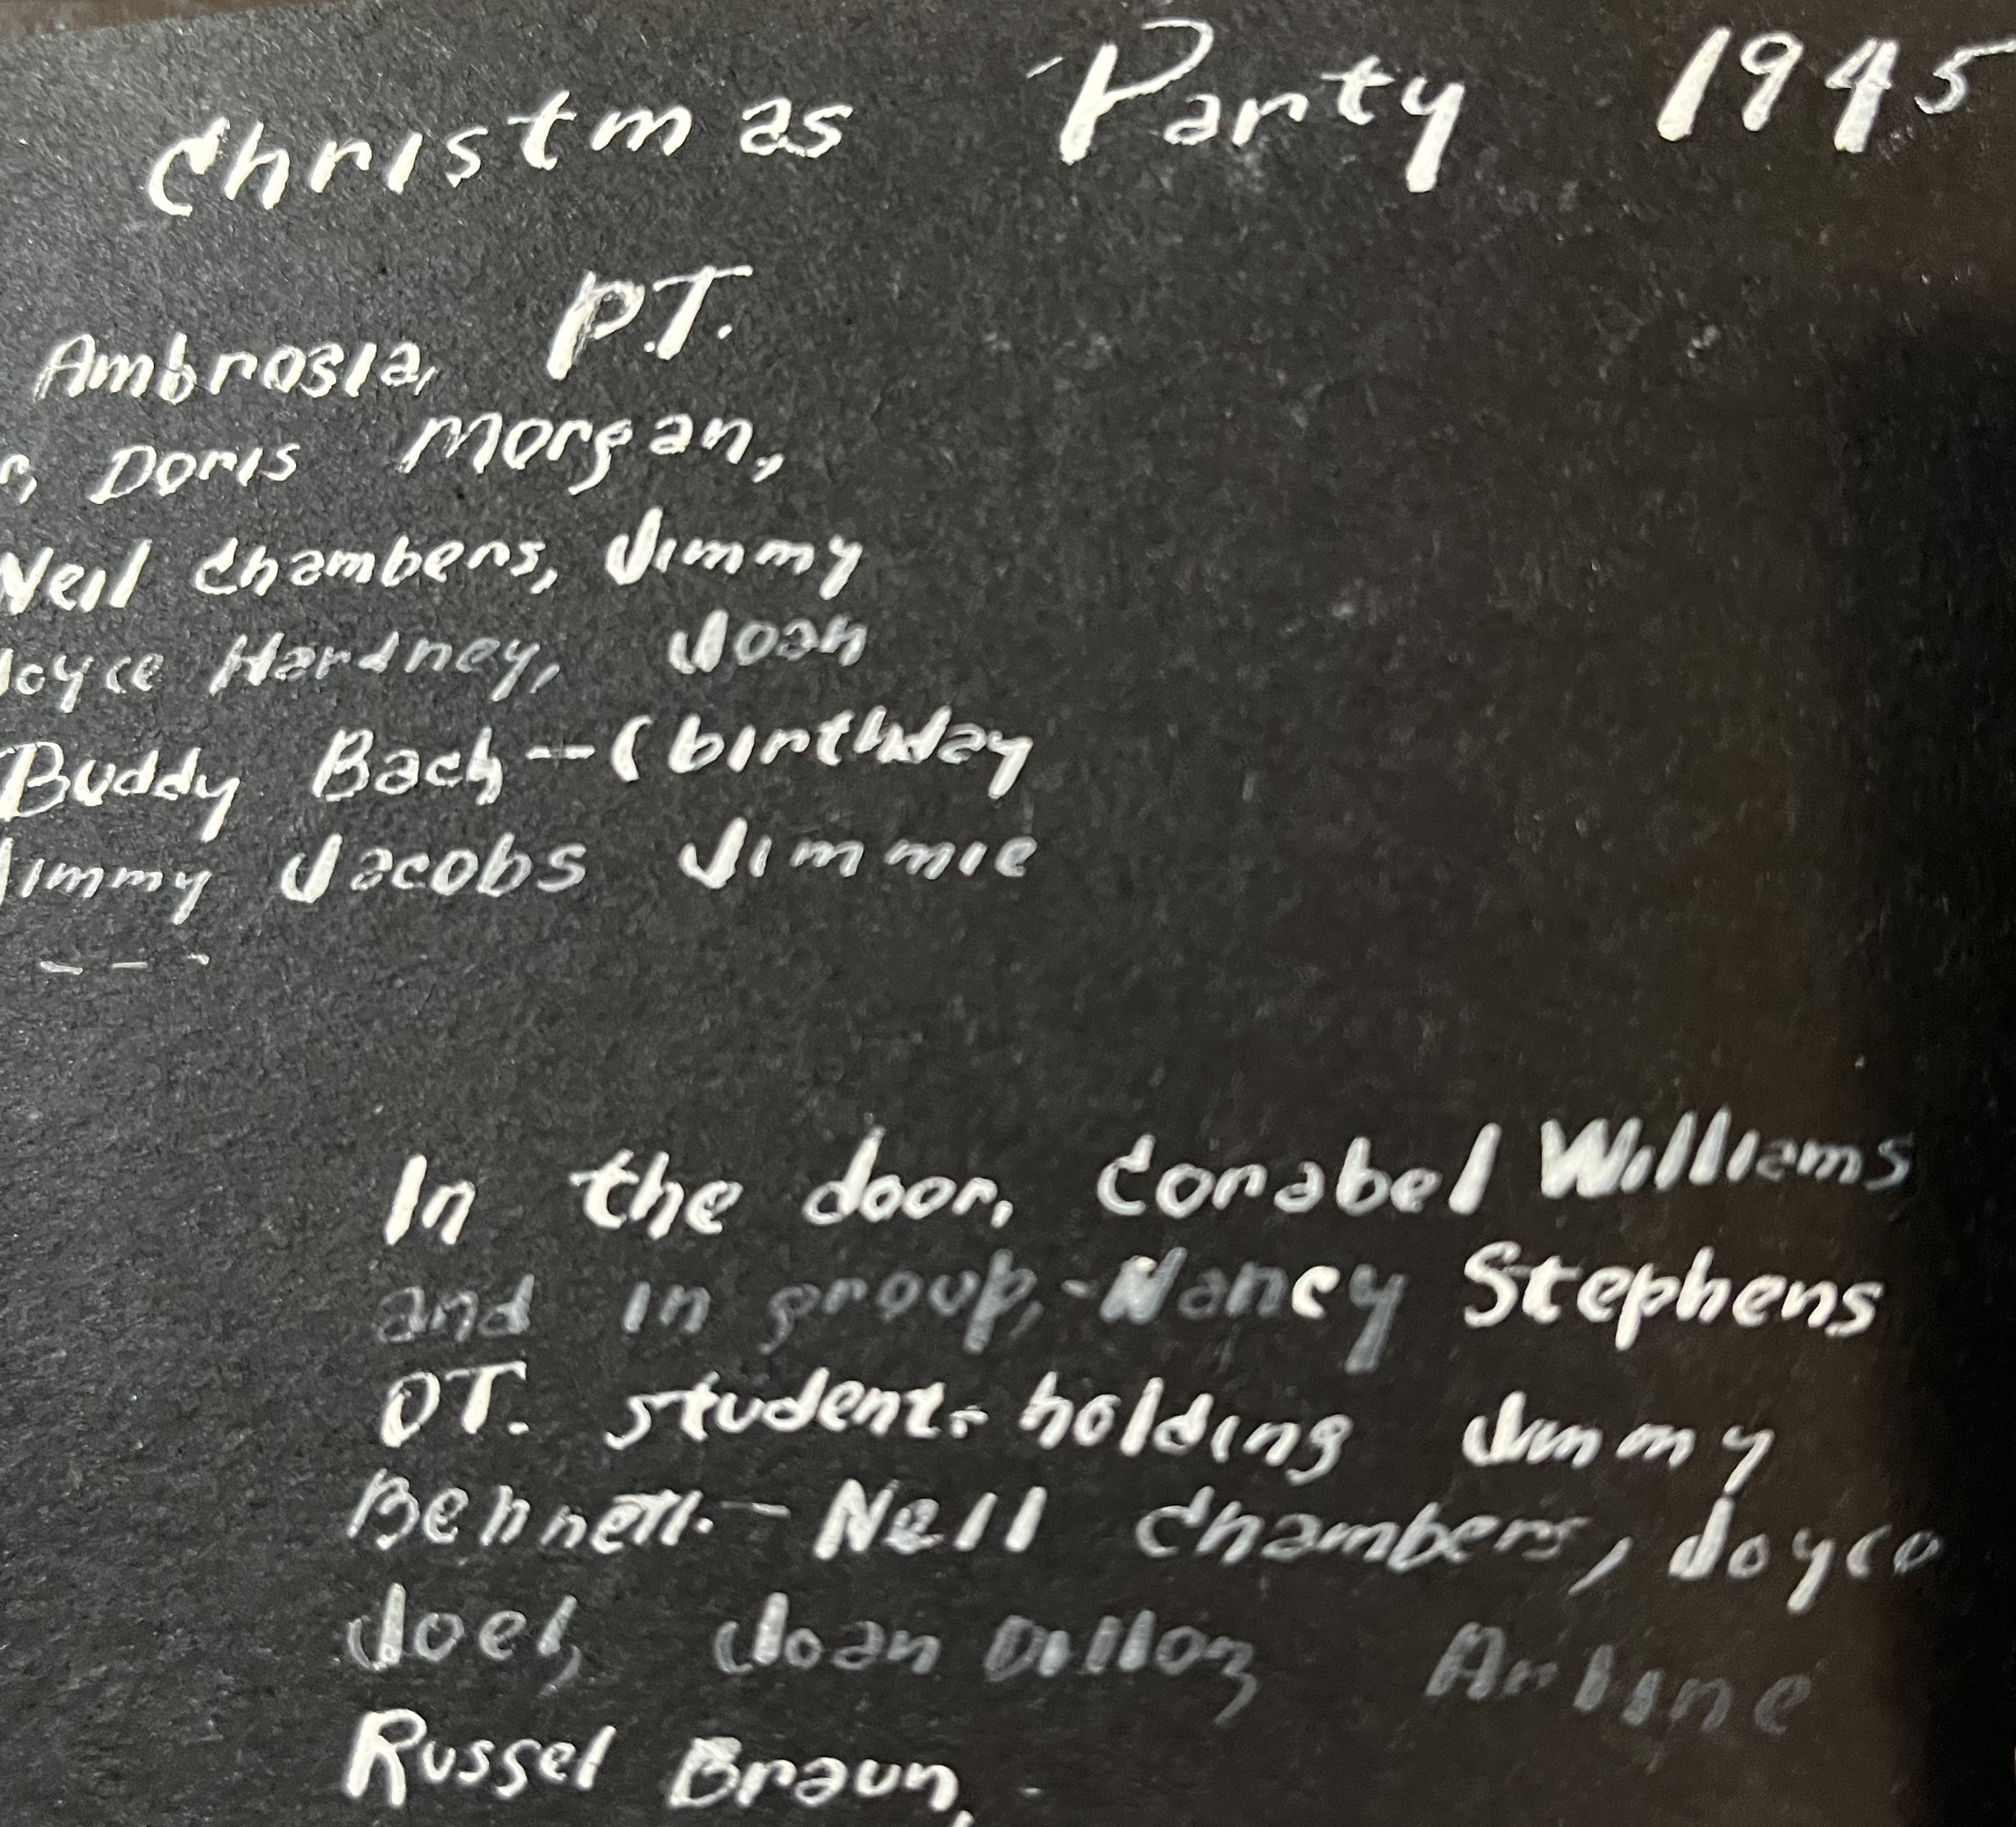 Christmas Party 1945
Ambrosia, P.T.
r, Doris Morgan,
Neil Chambers, Jimmy
Joyce Hardney, Joan
Buddy Bach--(birthday
Jimmy Jacobs Jimmie
---
In the door, Corabel Williams
and in group,-Nancy Stephens
OT. student- holding Jimmy
Bennett.- Neil Chambers, Joyce
Joel, Joan Dillon Arline
Russel Braun,